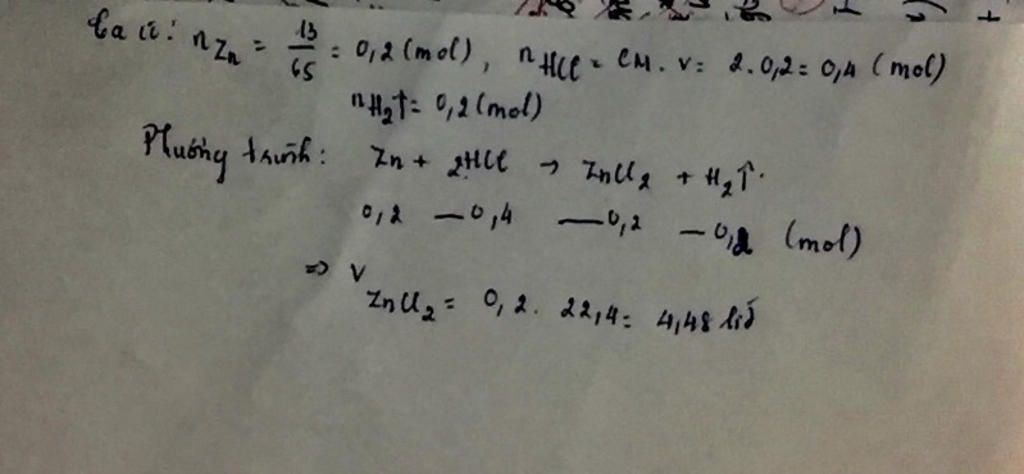 Ta có: nZn = 13/65 = 0,2 (mol), nHCl = CM. V = 2.0,2 = 0,4 (mol)
nH2↑ = 0,2 (mol)
Phương trình: Zn + 2HCl → ZnCl2 + H2↑.
0,2 — 0,4 — 0,2 — 0,2 (mol)
=> VZnCl2 = 0,2. 22,4 = 4,48 lít